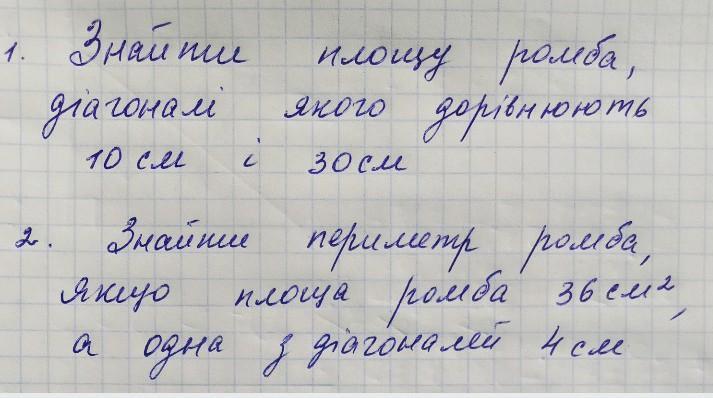 1. Знайти площу ромба,
діагоналі якого дорівнюють
10 см і 30 см
2. Знайти периметр ромба,
якщо площа ромба 36 см²,
а одна з діагоналей 4 см